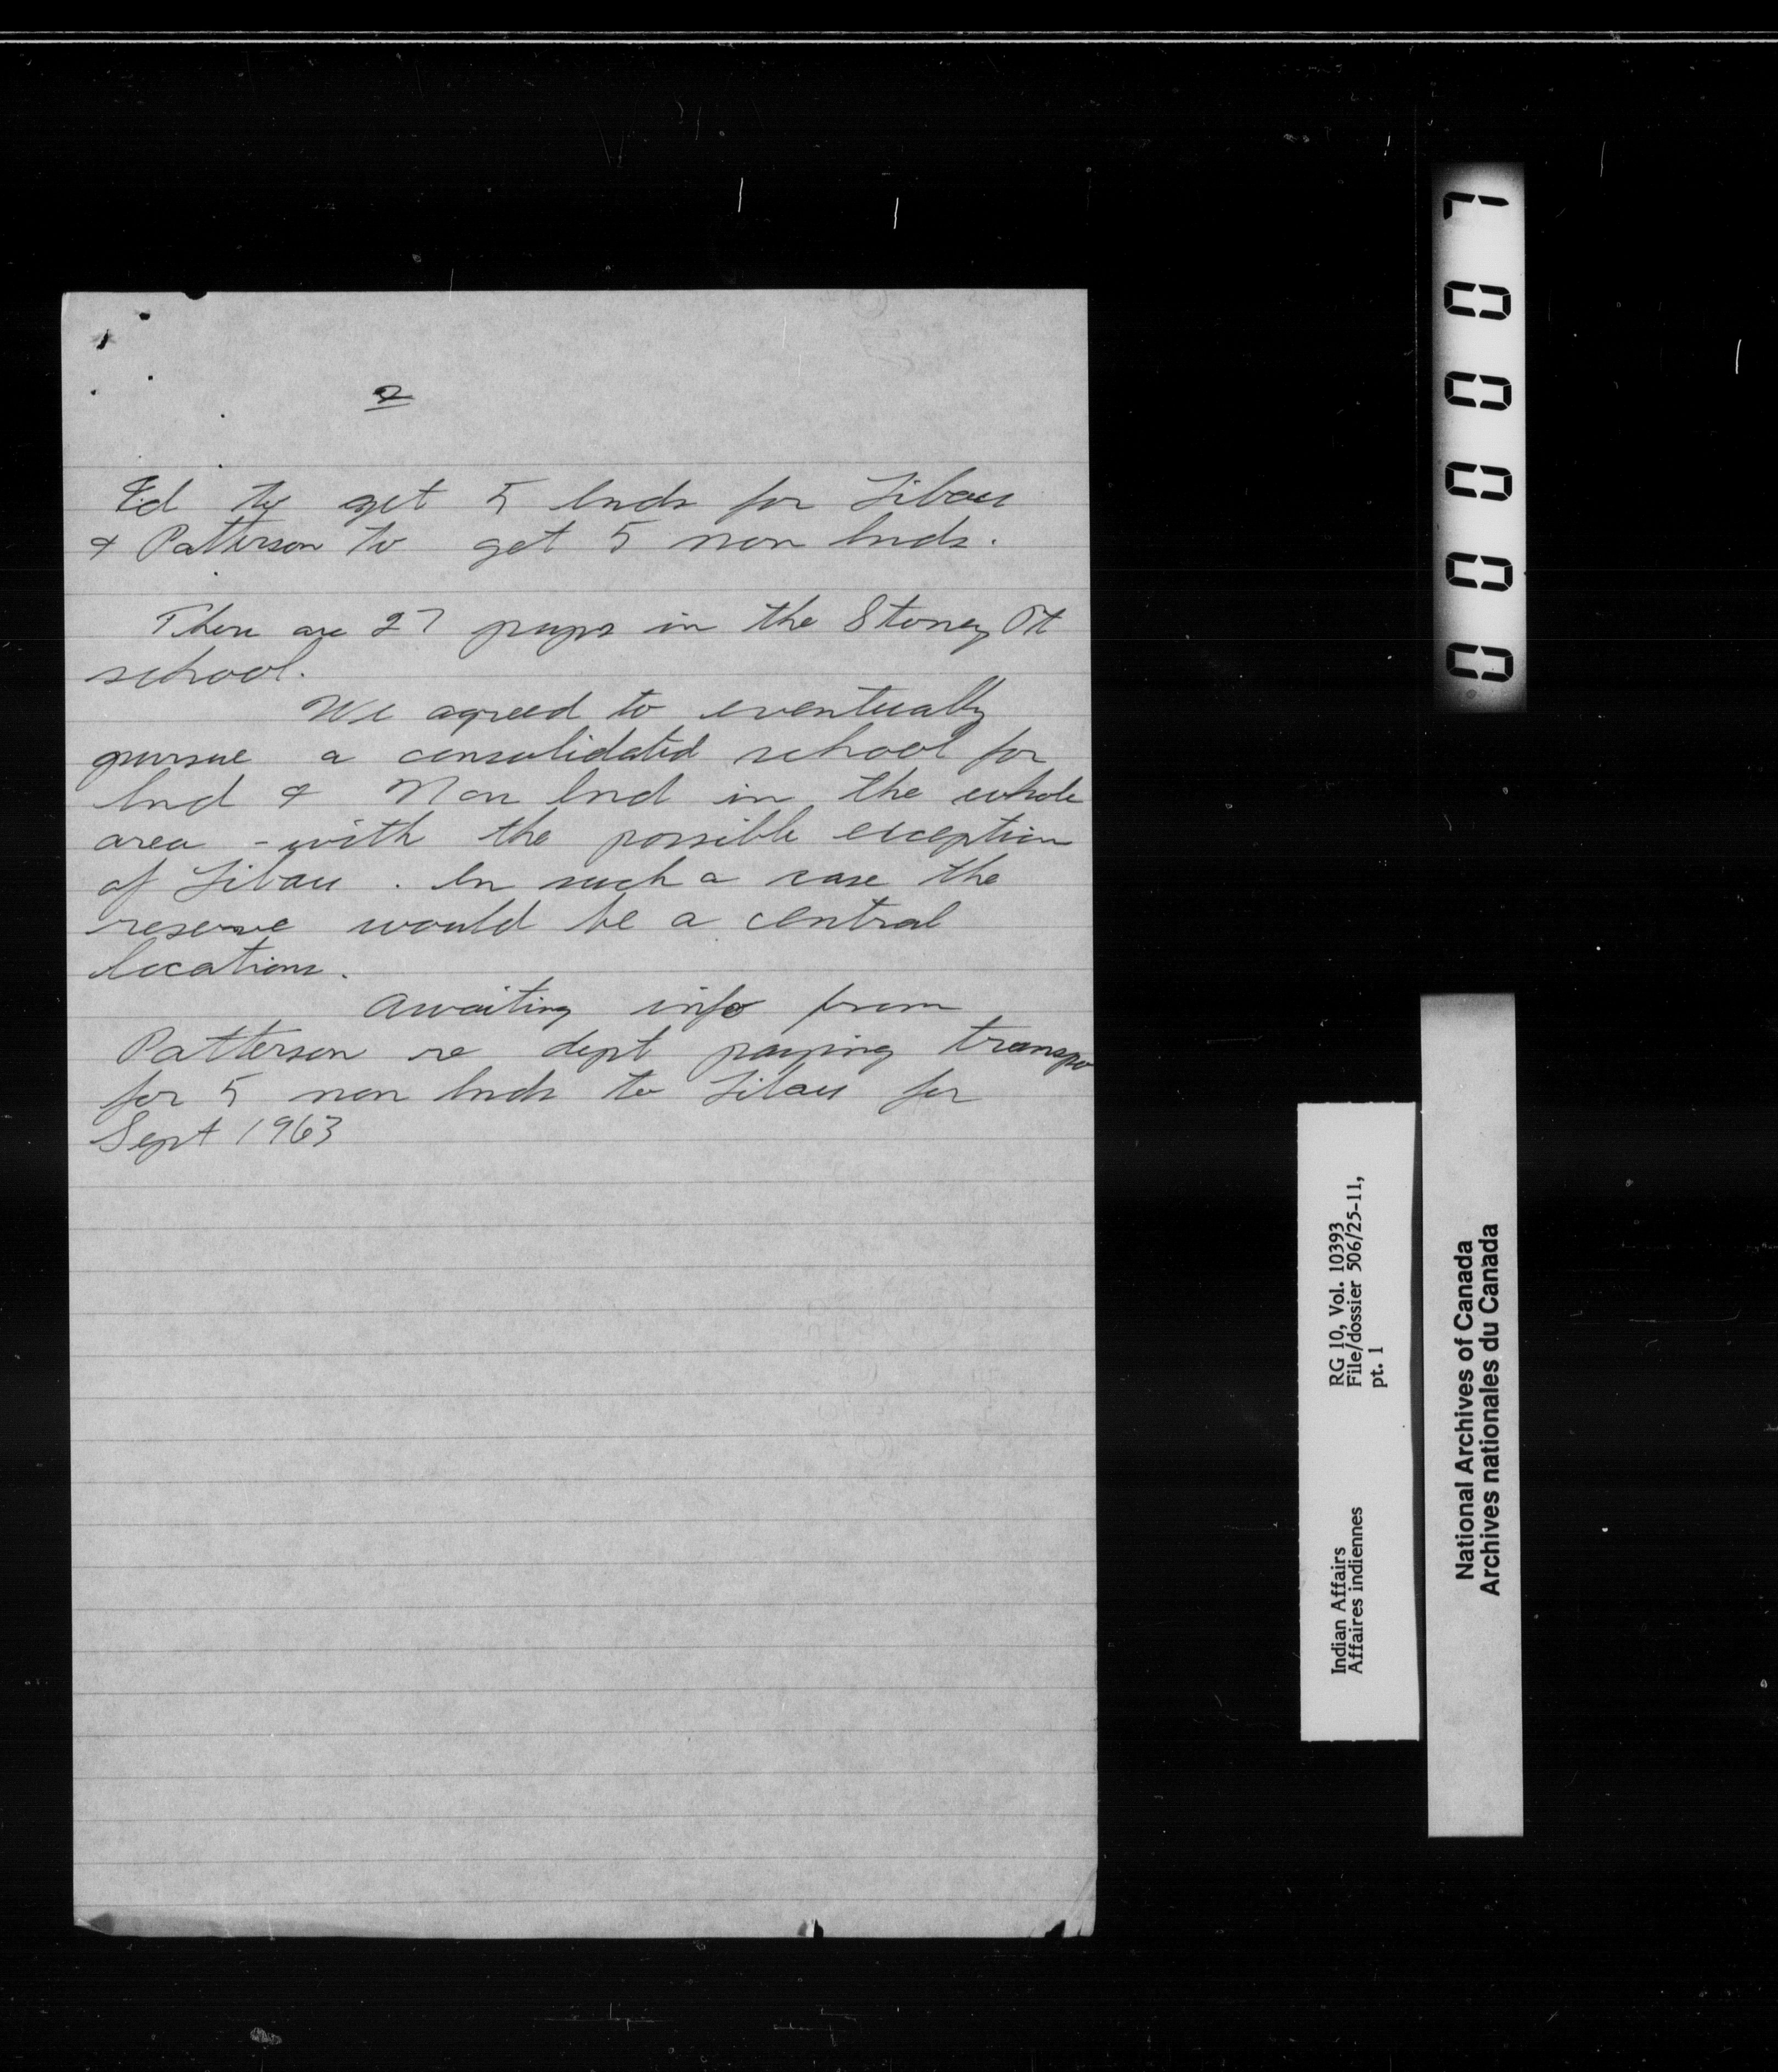 2
Ed to get 5 Inds for Libau
& Patterson to get 5 non Inds.
There are 27 pups in the Stoney Pt
school.
We agreed to eventually
pursue a consolidated school for
Ind & Non Ind in the whole
area - with the possible exception
of Libau. In such a case the
reserve would be a central
location.
Awaiting info from
Patterson re dept paying transpo
for 5 non Inds to Libau for
Sept 1963
000007
RG 10, Vol. 10393
File/dossier 506/25-11,
pt. 1
Indian Affairs
Affaires indiennes
National Archives of Canada
Archives nationales du Canada